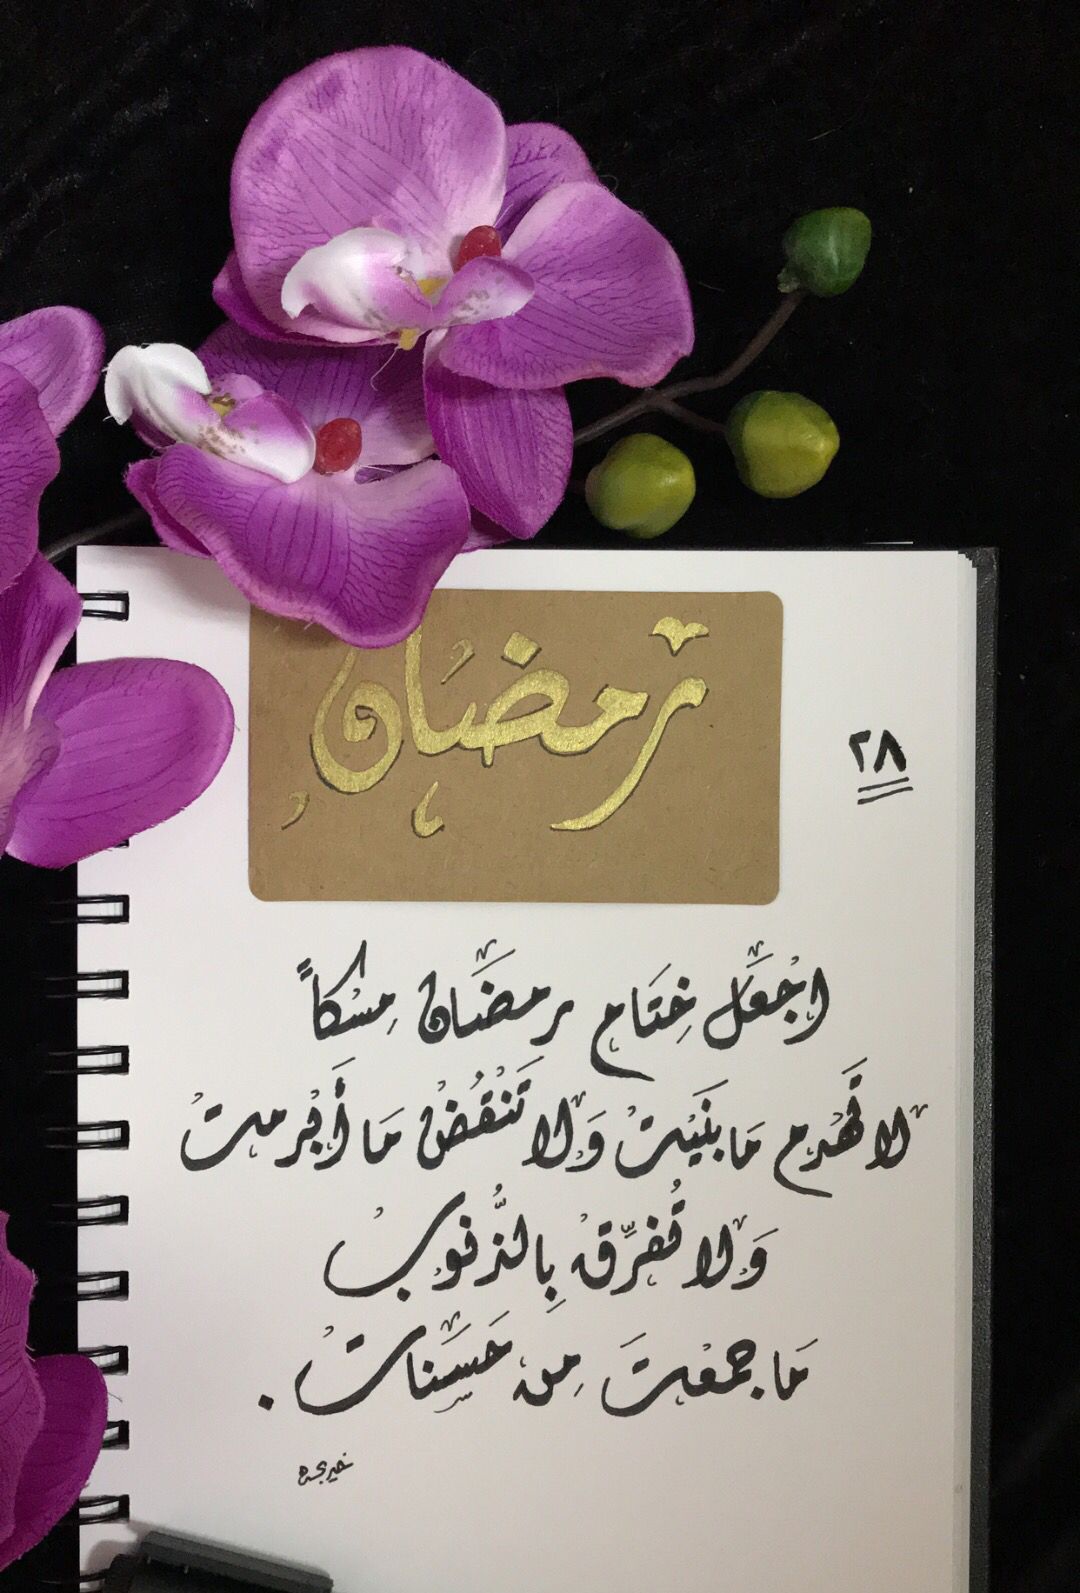 رمضان
٢٨
اجْعَل خِتَام رمضَان مِسْكاً
لا تَهْدم مَا بَنَيْتْ وَلا تَنْقُضْ مَا أَبْرمتْ
وَلا تُفرِّقْ بِالذُّنوبْ
مَا جمعْتَ مِن حَسَناتْ .